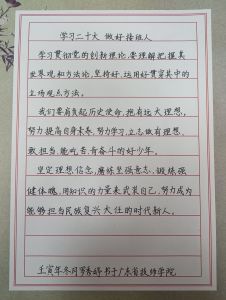 学习二十大 做好接班人
学习贯彻党的创新理论,要理解把握其
世界观和方法论,坚持好、运用好贯穿其中的
立场观点方法。
我们要肩负起历史使命,抱有远大理想,
努力提高自身素养,努力学习,立志做有理想、
敢担当、能吃苦、肯奋斗的好少年。
坚定理想信念,磨练坚强意志,锻炼强
健体魄,用知识的力量来武装自己,努力成为
能够担当民族复兴大任的时代新人。
壬寅年冬月 书于广东省技师学院